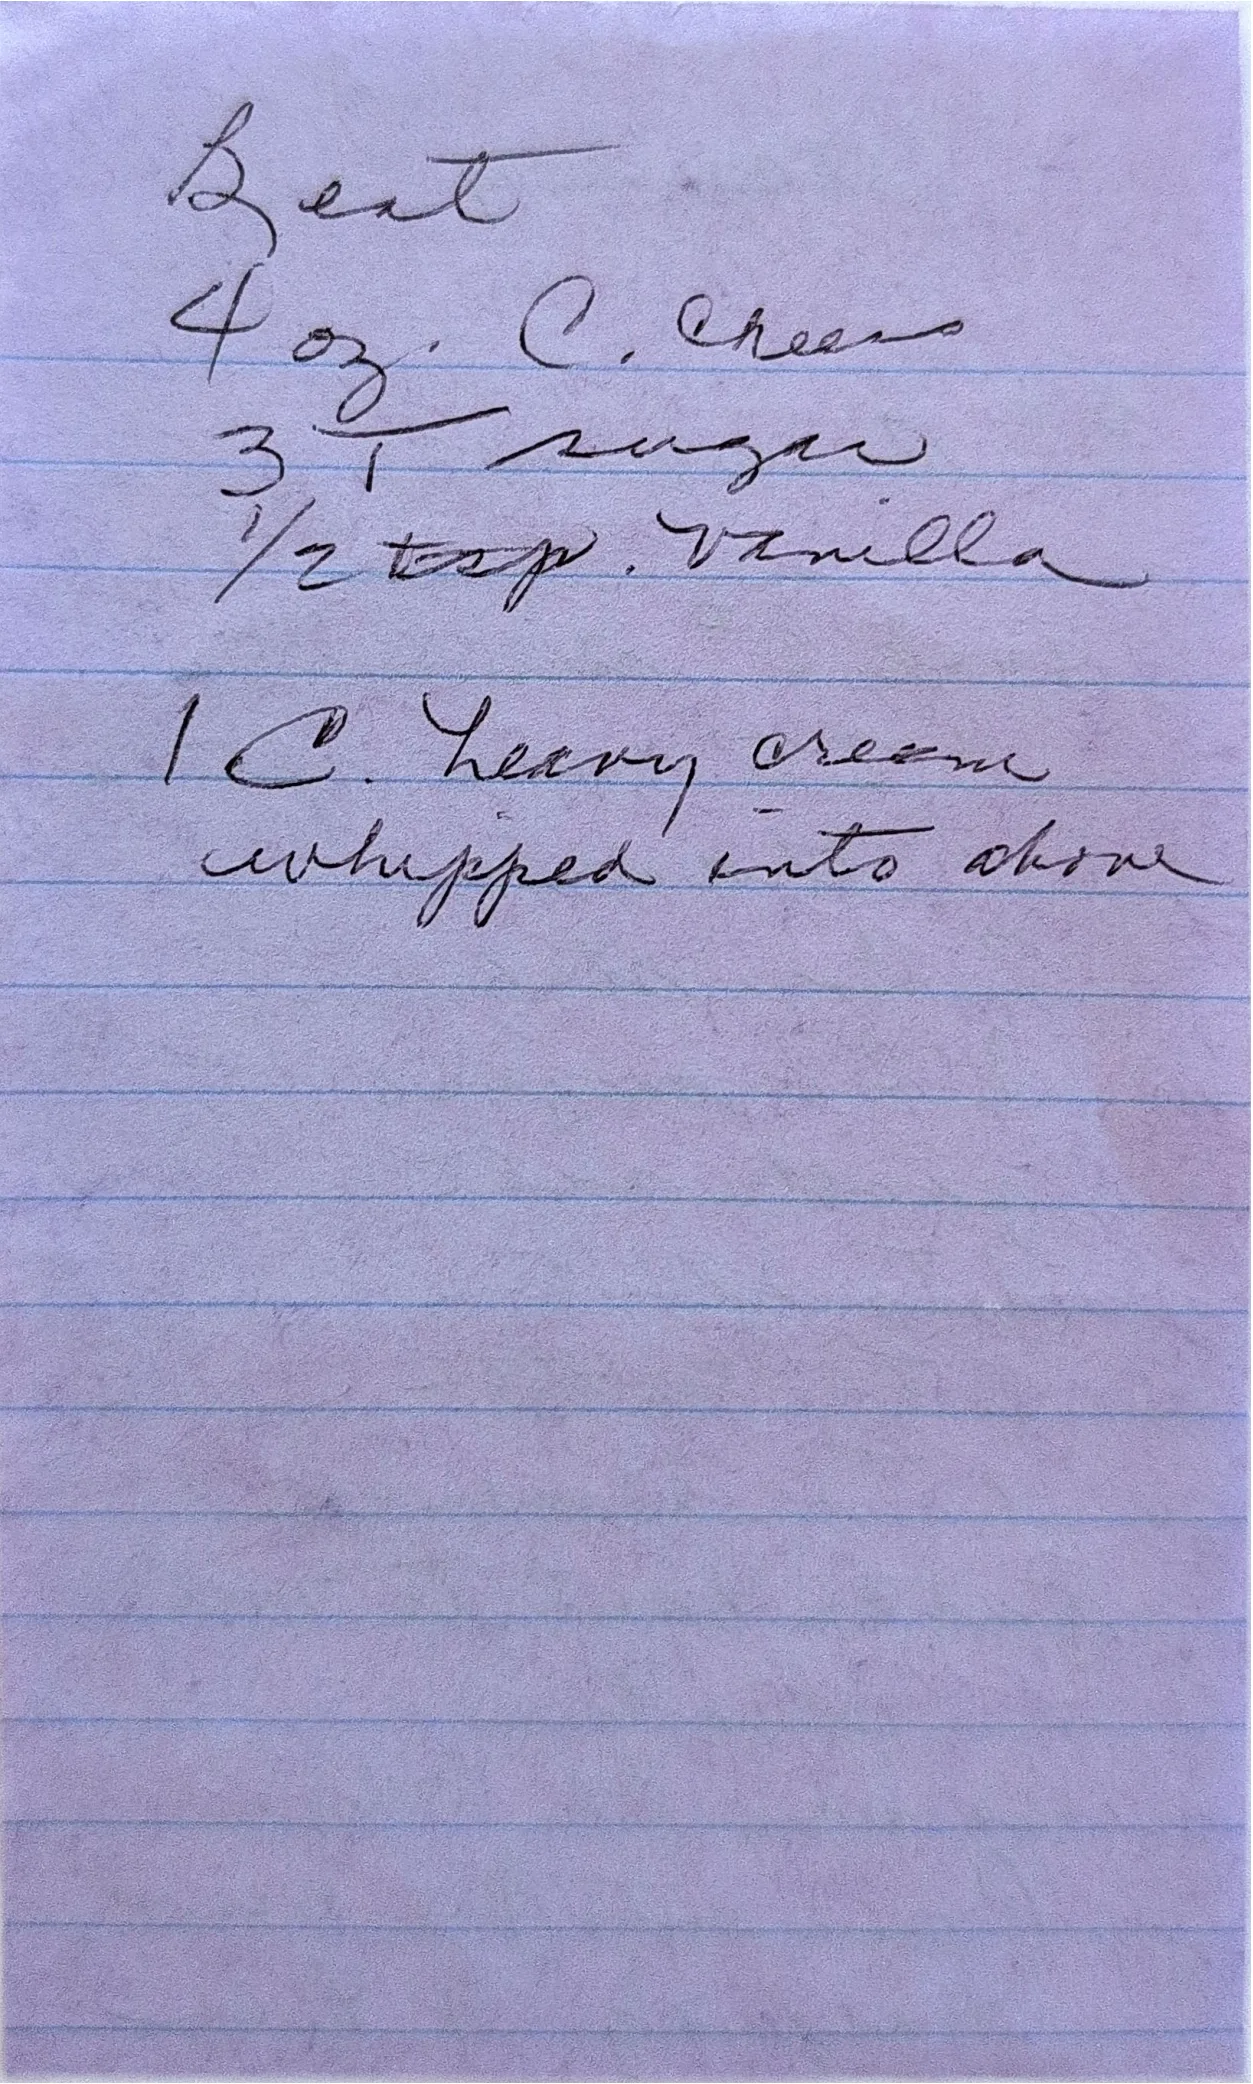 Beat
4 oz. C. Cheese
3 T sugar
1/2 tsp. Vanilla
1 C. heavy cream
whipped into above